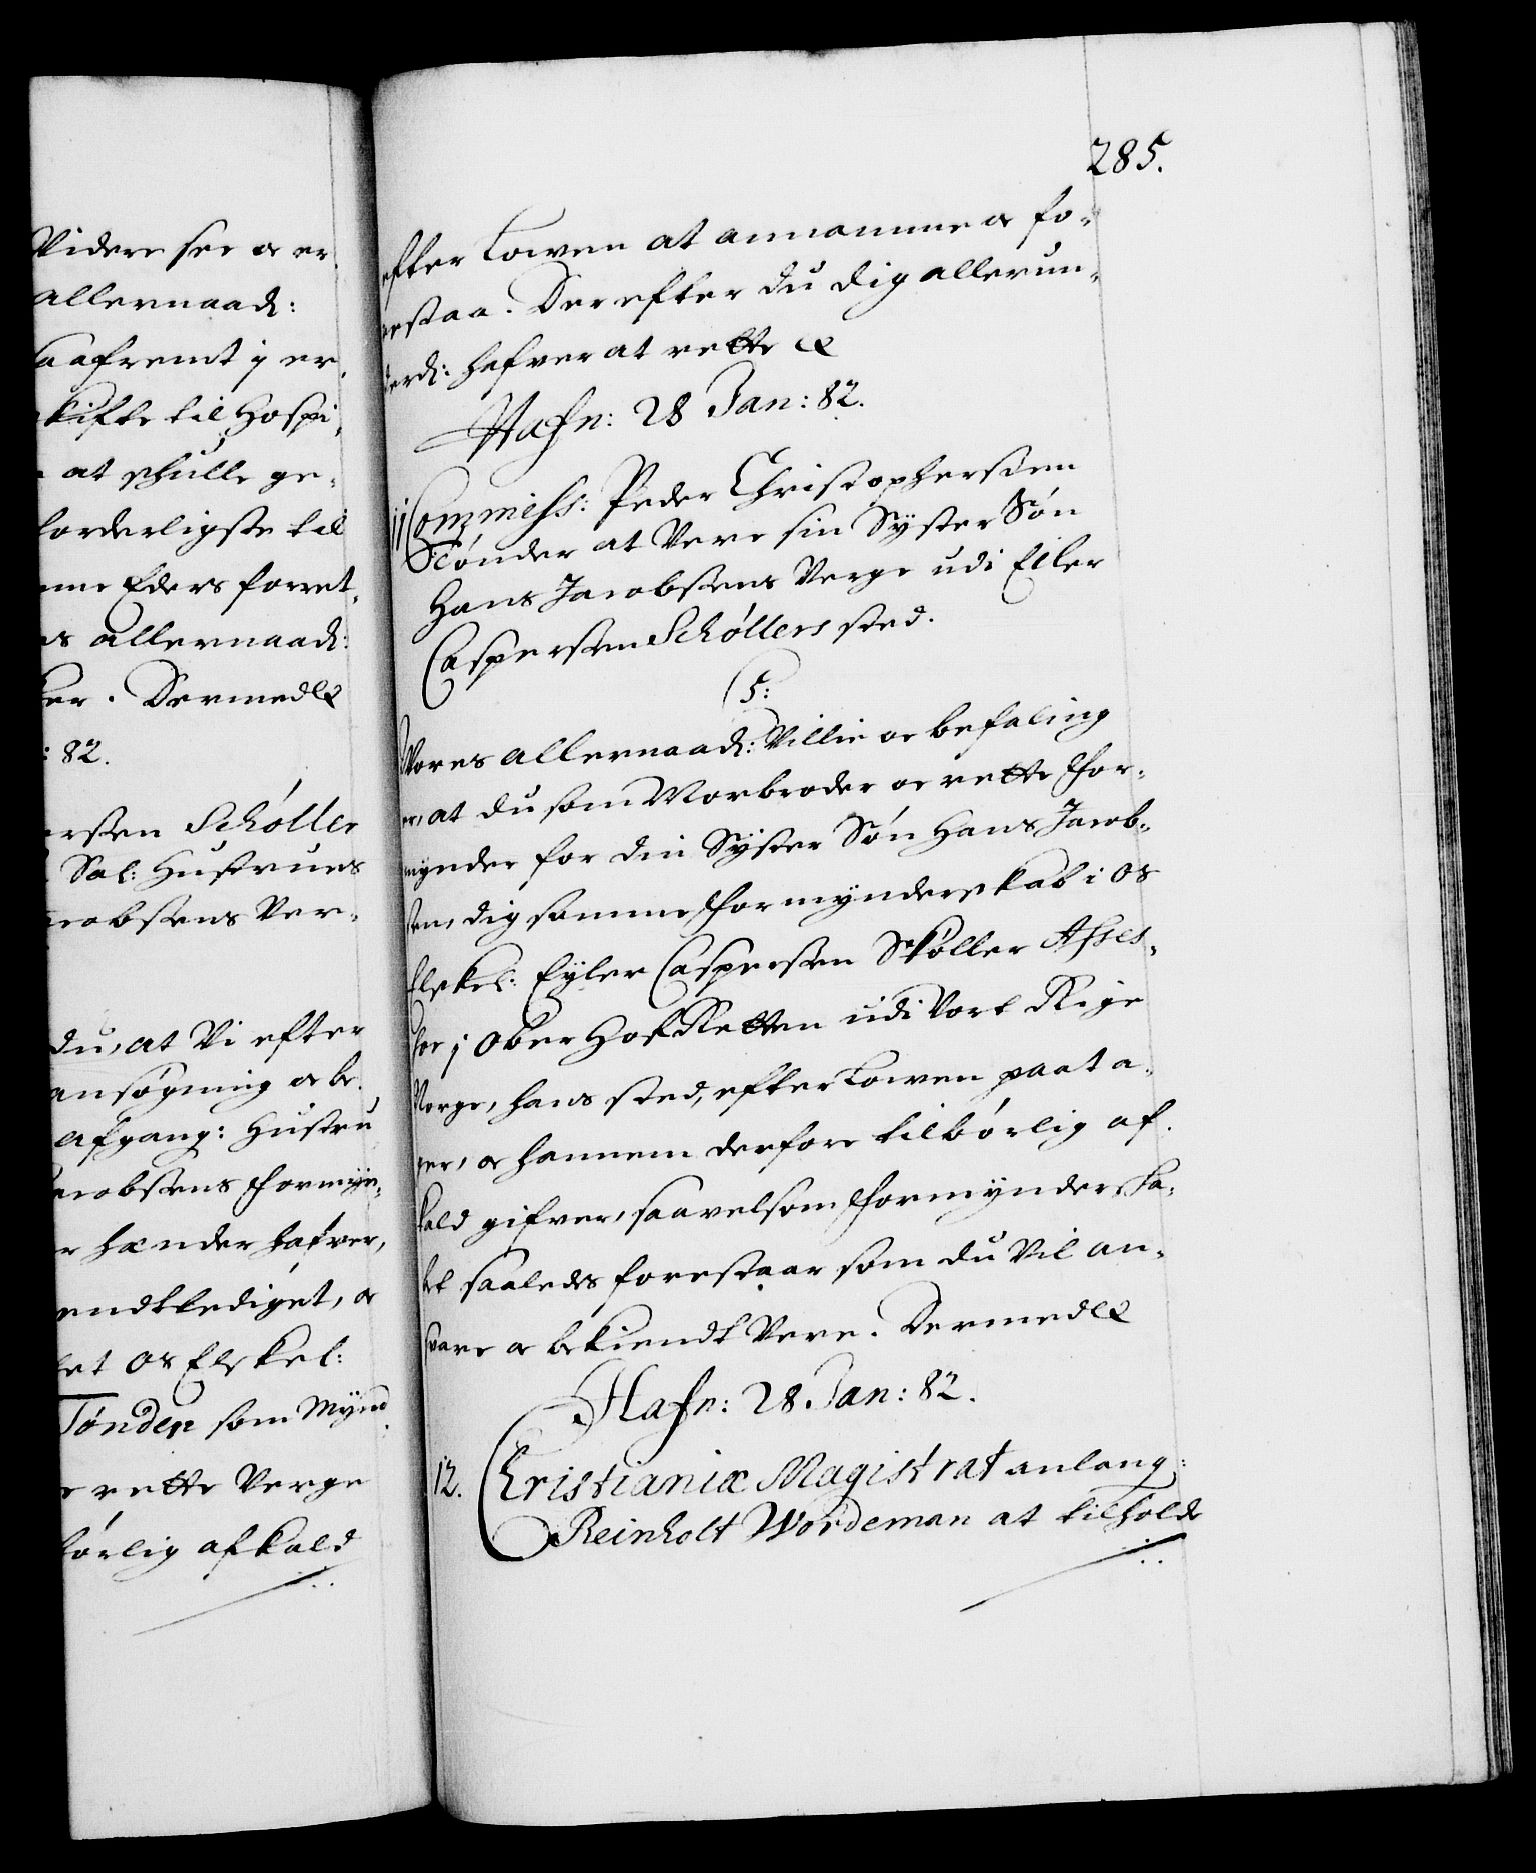 Videre see oc er-
allernaad:
saafremt i er-
skifte til Hospi-
at skulle ge-
forderligste til
Eders forret-
allernaad:
Dermed etc
: 82.
ersen Schøller
Sal: Hustrues
acobsens Ver-
du, at Vi efter
ansøgning oc be-
afgang: Hustru
Jacobsens formyn-
hænder hafver,
endtlediget, oc
Os Elskel:
Tønder som Mynd
rette Verge
børlig afkald
285.
efter Lowen at annamme oc fo-
restaa. Derefter du dig allerun-
derd: hafver at rette etc
Hafn: 28 Jan: 82.
11 Commiss: Peder Christophersen
Tønder at Vere sin Syster Søn
Hans Jacobsens Verge udi Eiler
Caspersen Schøllers sted.
C 5:
Vores allernaad: Villie oc befaling
er, at du som Morbroder oc rette For-
mynder for din Syster Søn Hans Jacob-
sen, dig samme Formynderskab i Os
Elskel: Eyler Caspersen Skøller Asses-
sor i Ober Hof Retten udi Vort Rige
Norge, hans sted, efter Lowen paata-
ger, oc hannem derfore tilbørlig af-
kald gifver, saavelsom Formynderska-
bet saaledes forestaar som du Vil an-
svare oc bekiendt Vere. Dermed etc
Hafn: 28 Jan: 82.
12. Christianiæ Magistrat anlang:
Reinholt Wordeman at tilholde